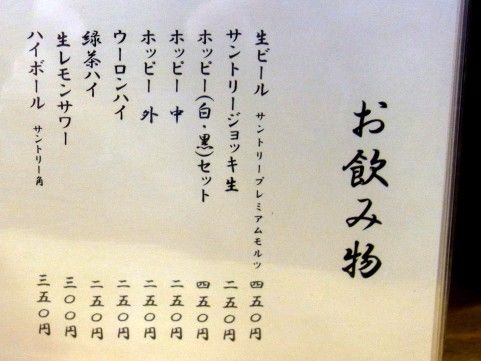 お飲み物
生ビール サントリープレミアムモルツ 四五〇円
サントリージョッキ生 二五〇円
ホッピー(白・黒)セット 四五〇円
ホッピー 中 二五〇円
ホッピー 外 二五〇円
ウーロンハイ 二五〇円
緑茶ハイ 二五〇円
生レモンサワー 三〇〇円
ハイボール サントリー角 三五〇円